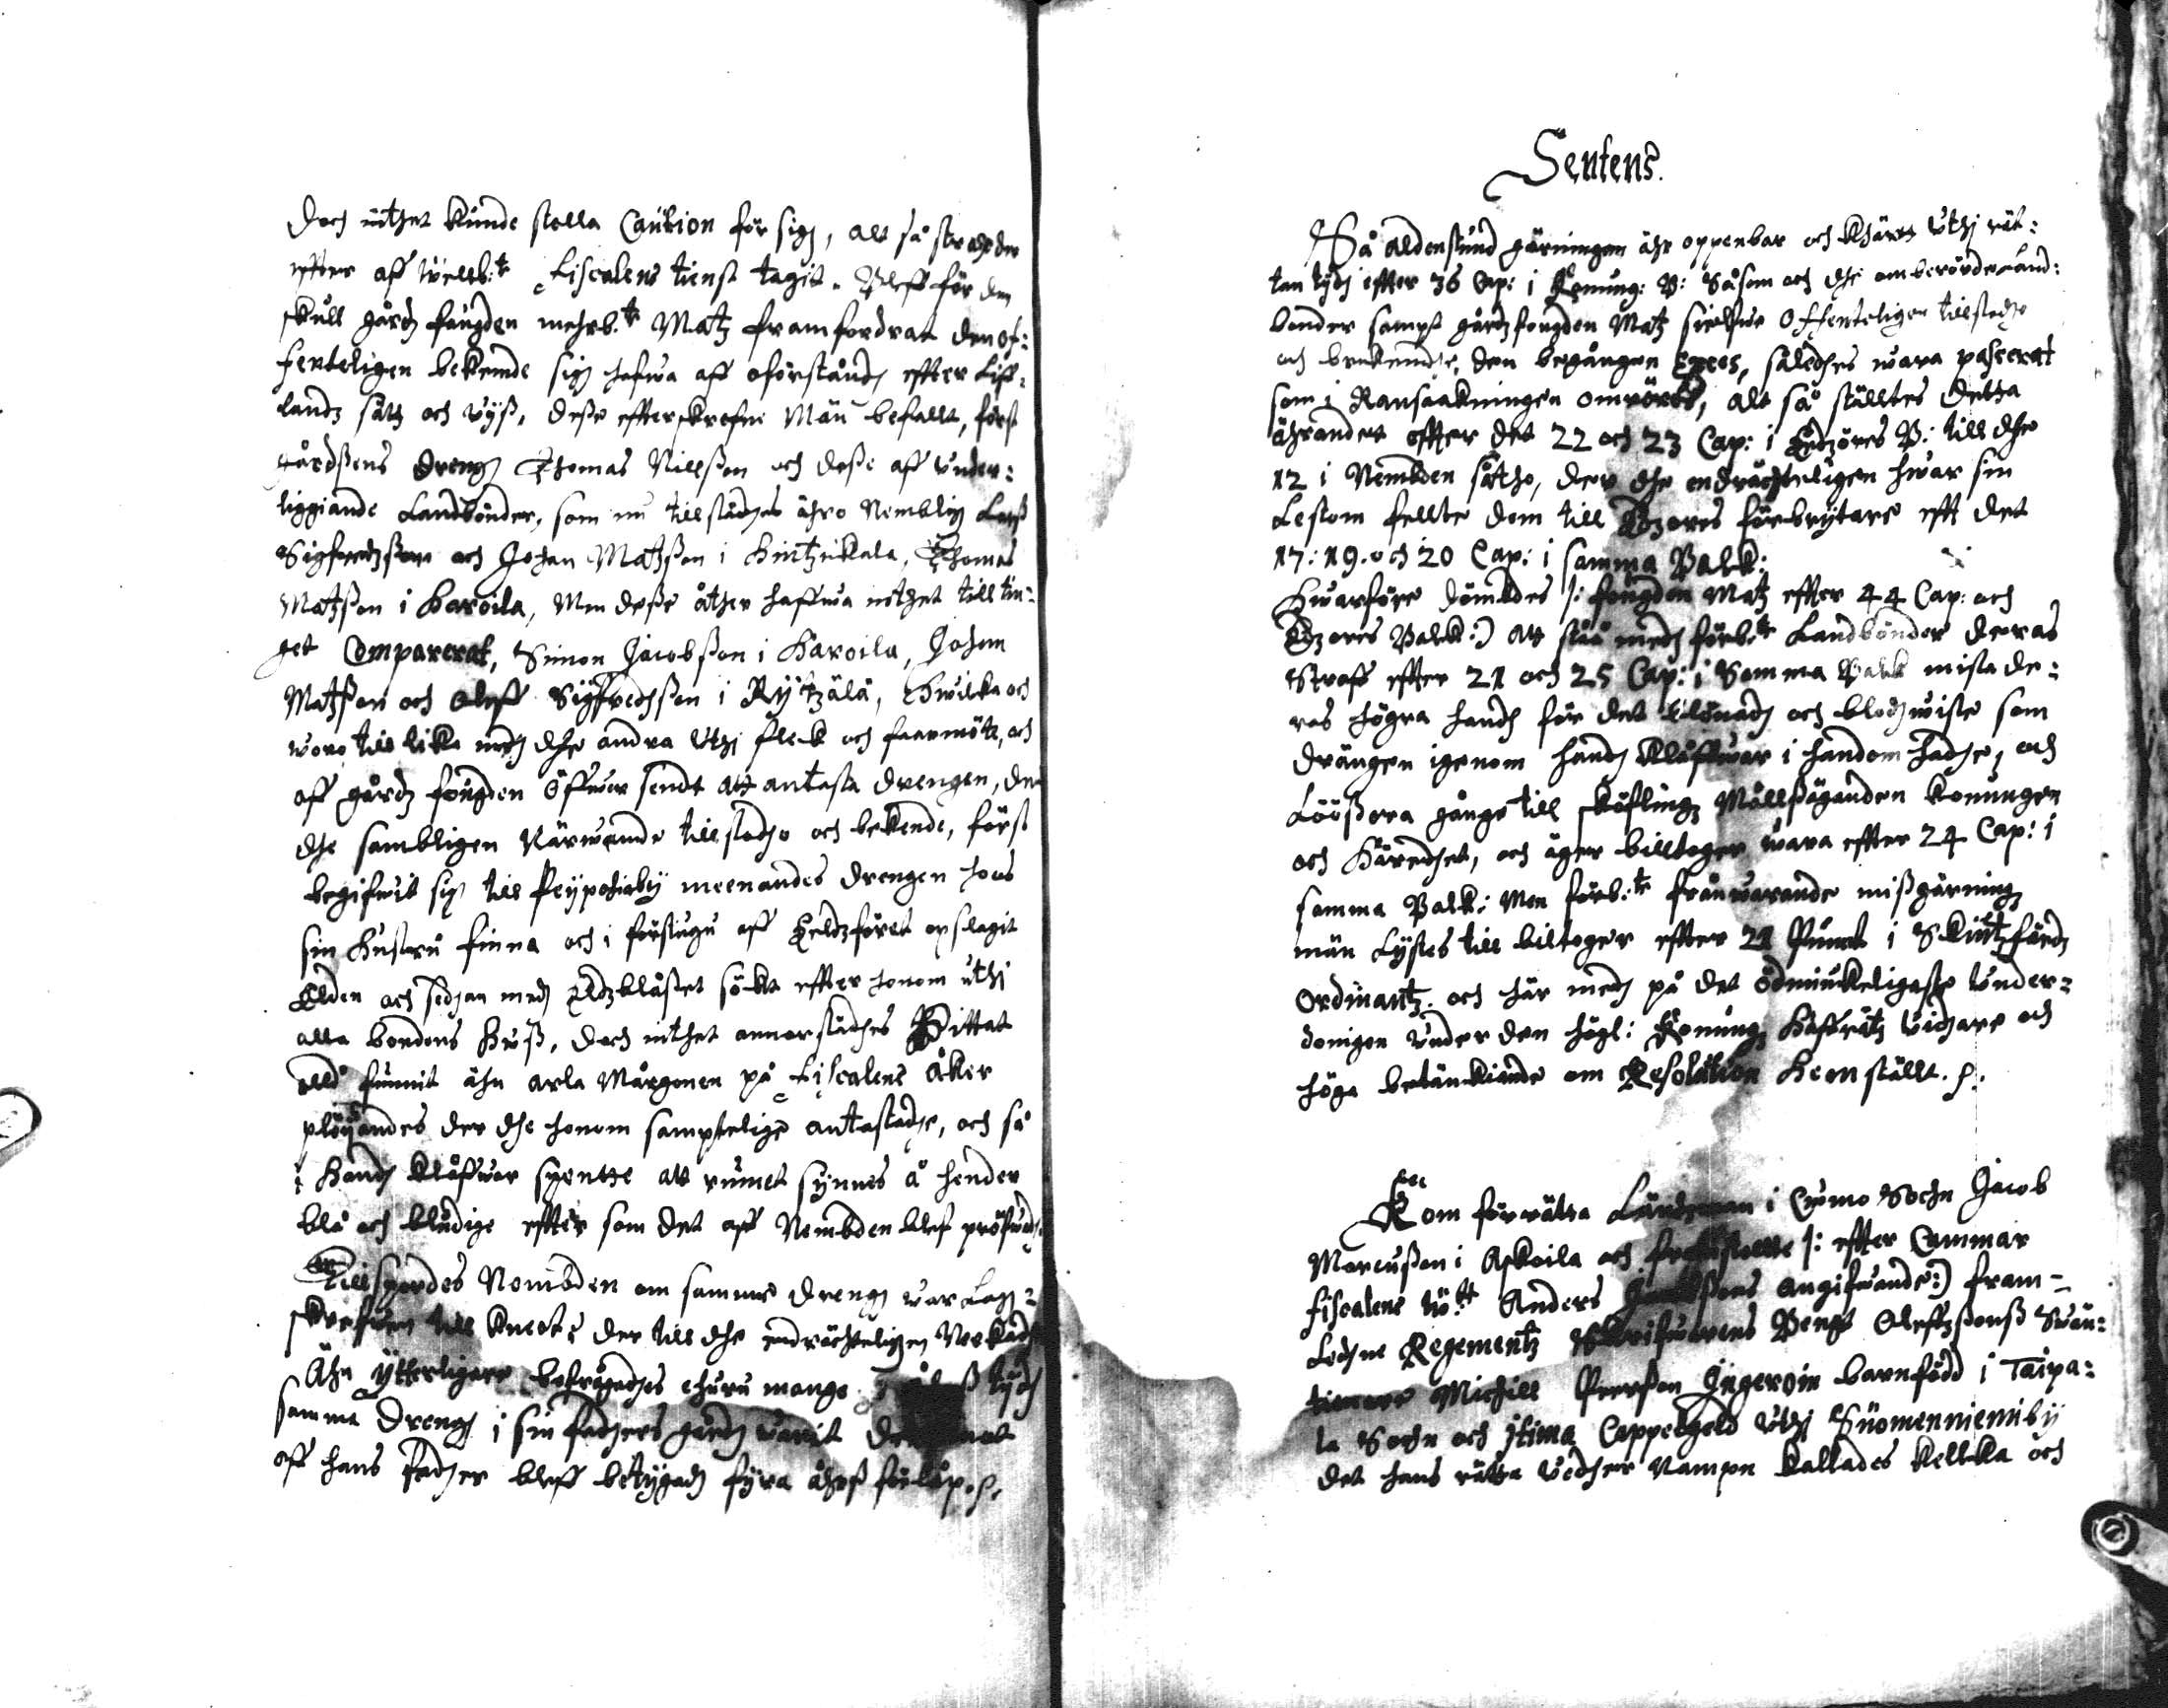 doch inthet kunde stella Caution för sigh, alt så strax der
effter aff Wellb:te Fiscalens tienst tagit. Bleff för den
skull gårdz fougden mehrb:te Matz framfordrat den of:
fenteligen bekende sigh hafwa aff oförståndh effter Liff:
landz sätt och wyss, desse effterskrefne Män befallt, först
gårdssens drengh Thomas Nillsson och desse aff under:
liggiande Landbönder, som nu tillstädhes ähro Nembligh Larss
Sigfredzsson och Johan Matzsson i Hintzikala, Thomas
Matzsson i Haroila, Men desse åther haffwa inthet till tin:
get Comparerat, Simon Jacobsson i Haroila, Johan
Matzsson och Oleff Sigfredhsson i Rytzälä, Hwilka och
woro till lika medh dhe andra uthj fleck och faarmöte, och
aff gårdz fougden öffwer sendt att antasta drengen, den
dhe sambligen Närwarande tillstodho och bekende, först
begifwit sigh till Peypohiaby meenandes drengen hoos
sin hustru finna och i förstugu aff Eeldzföret opslagit
Elden och sedhan medh Eldzblåsset sökt effter honom uthj
alla bondens huss, doch inthet annorstädhes hittat
elld funnit ähn arla Mårgonen på Fiscalens Åker
plöyandes der dhe honom samptelige antastadhe, och så
i handh klåfwar spentte att rumet synnes å hender
blå och bludige effter som det aff Nembden blef pröfwadh.
Tillspordes Nembden om samme drengh war Lagh:
skrefwen till Knecht, der till dhe endrächteligen Nekadhe
Ähn ytterligare befrågadhes ehuru mange tydh
samma drengh i sin fadhers gårdh warit
aff hans fadher bleff betygadh fyra åhrss förlåp.

Sentens.
Så aldenstund gärningen ähr oppenbar och Klar uthj rät:
tan tydh effter 36 Cap: i Konung: B: Såsom och dhe omberörde Land:
bönder sampt gårdzfougden Matz sielfwe Offenteligen tillstodhe
och bekendhe, den begången Excess, såledhes wara passerat
som i Ransaakningen omrördt, alt så ställtes detta
ährandet effter det 22 och 23 Cap: i Edzöres B: till dhe
12 i Nembden såtho, der dhe endrächteligen hwar sin
Lestom fellte dem till Edzöres förbrytare efft det
17: 19. och 20 Cap: i samma Balk:
Hwarföre dömbdes /: fougden Matz effter 44 Cap: och
Edzöres Balk:) att stå medh förb:te Landbönder deras
Straff effter 21 och 25 Cap: i Samma Balk mista de:
ras högra handh för det blånadh och blodhwiste som
drängen igenom handh klåffwar i handom hadhe, och
Löössöra gånge till sköfling Målssäganden Konungen
och Häredhet, och äger billtoger wara effter 24 Cap: i
samma Balk: Men förb:te frånwarande missgärningz
män Lystes till biltoger effter 21 Punct i Skiutzfärdz
Ordinantz. och här medh på det ödmiukeligaste under:
donigen under den högl: Konungz Håffrätz widhare och
höge betänkiande om Resolution Heemställt.

Kom förrätta Ländzman i Cumo Sochn Jacob
Marcusson i Askoila och /: effter Cammar
Fiscalens W:tt Anders angifwande:) fram-
Ledhne Regementz Skrifwarens Bengt Oleffzssonss Swän:
tienare Michill Peersson Ingeroin barnfödd i Taipa:
la Sochn och Jtima Cappelgeld uthj Suomenniemi by
det hans rätta Vedher Nampn kallades Kellka och